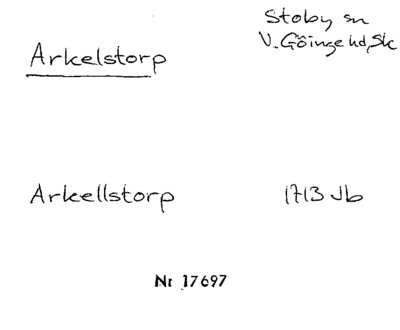 Stoby sn
V. Göinge hd, Sk
Arkelstorp
Arkellstorp 1713 Jb
Nr 17697